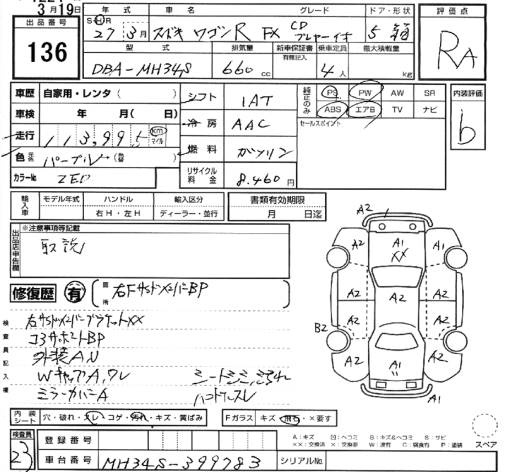 3月19日
出品番号
136
年式 車名 グレード ドア・形状
SH 27年 3月 スズキ ワゴンR FX CDプレーヤー付 5 箱
評価点
RA
型式 排気量 新車保証書 乗車定員 最大積載量
有無記入
DBA-MH34S 660cc 4人 kg
車歴 自家用・レンタ( )
車検 年 月( 日)
走行 113,995 km マイル
色 パープル
カラーNo ZED
シフト 1AT
冷房 AAC
燃料 ガソリン
リサイクル料金 8,460円
純正のみ PS PW AW SR
ABS エアB TV ナビ
セールスポイント
内装評価
b
輸入車 モデル年式 ハンドル 輸入区分 書類有効期限
右H・左H ディーラー・並行 月 日迄
出品店申告欄
※注意事項等
取説
修復歴 有 箇所 右FサイドメンバーBP
検査員記入欄
右サイドメンバーブラケットXX
コアサポートBP
外装AW
WキャップA,ワレ
ミラーカバーA
A2 A1 XX A2
A2 A2
A2 A2 A2
B2
A2 A2
A1
内装シート 穴・破れ・スレ・コゲ・汚れ・キズ・黄ばみ
Fガラス キズ・飛石・×要す
スペア
検査員
23
登録番号
車台番号 MH34S-399783 シリアルNo